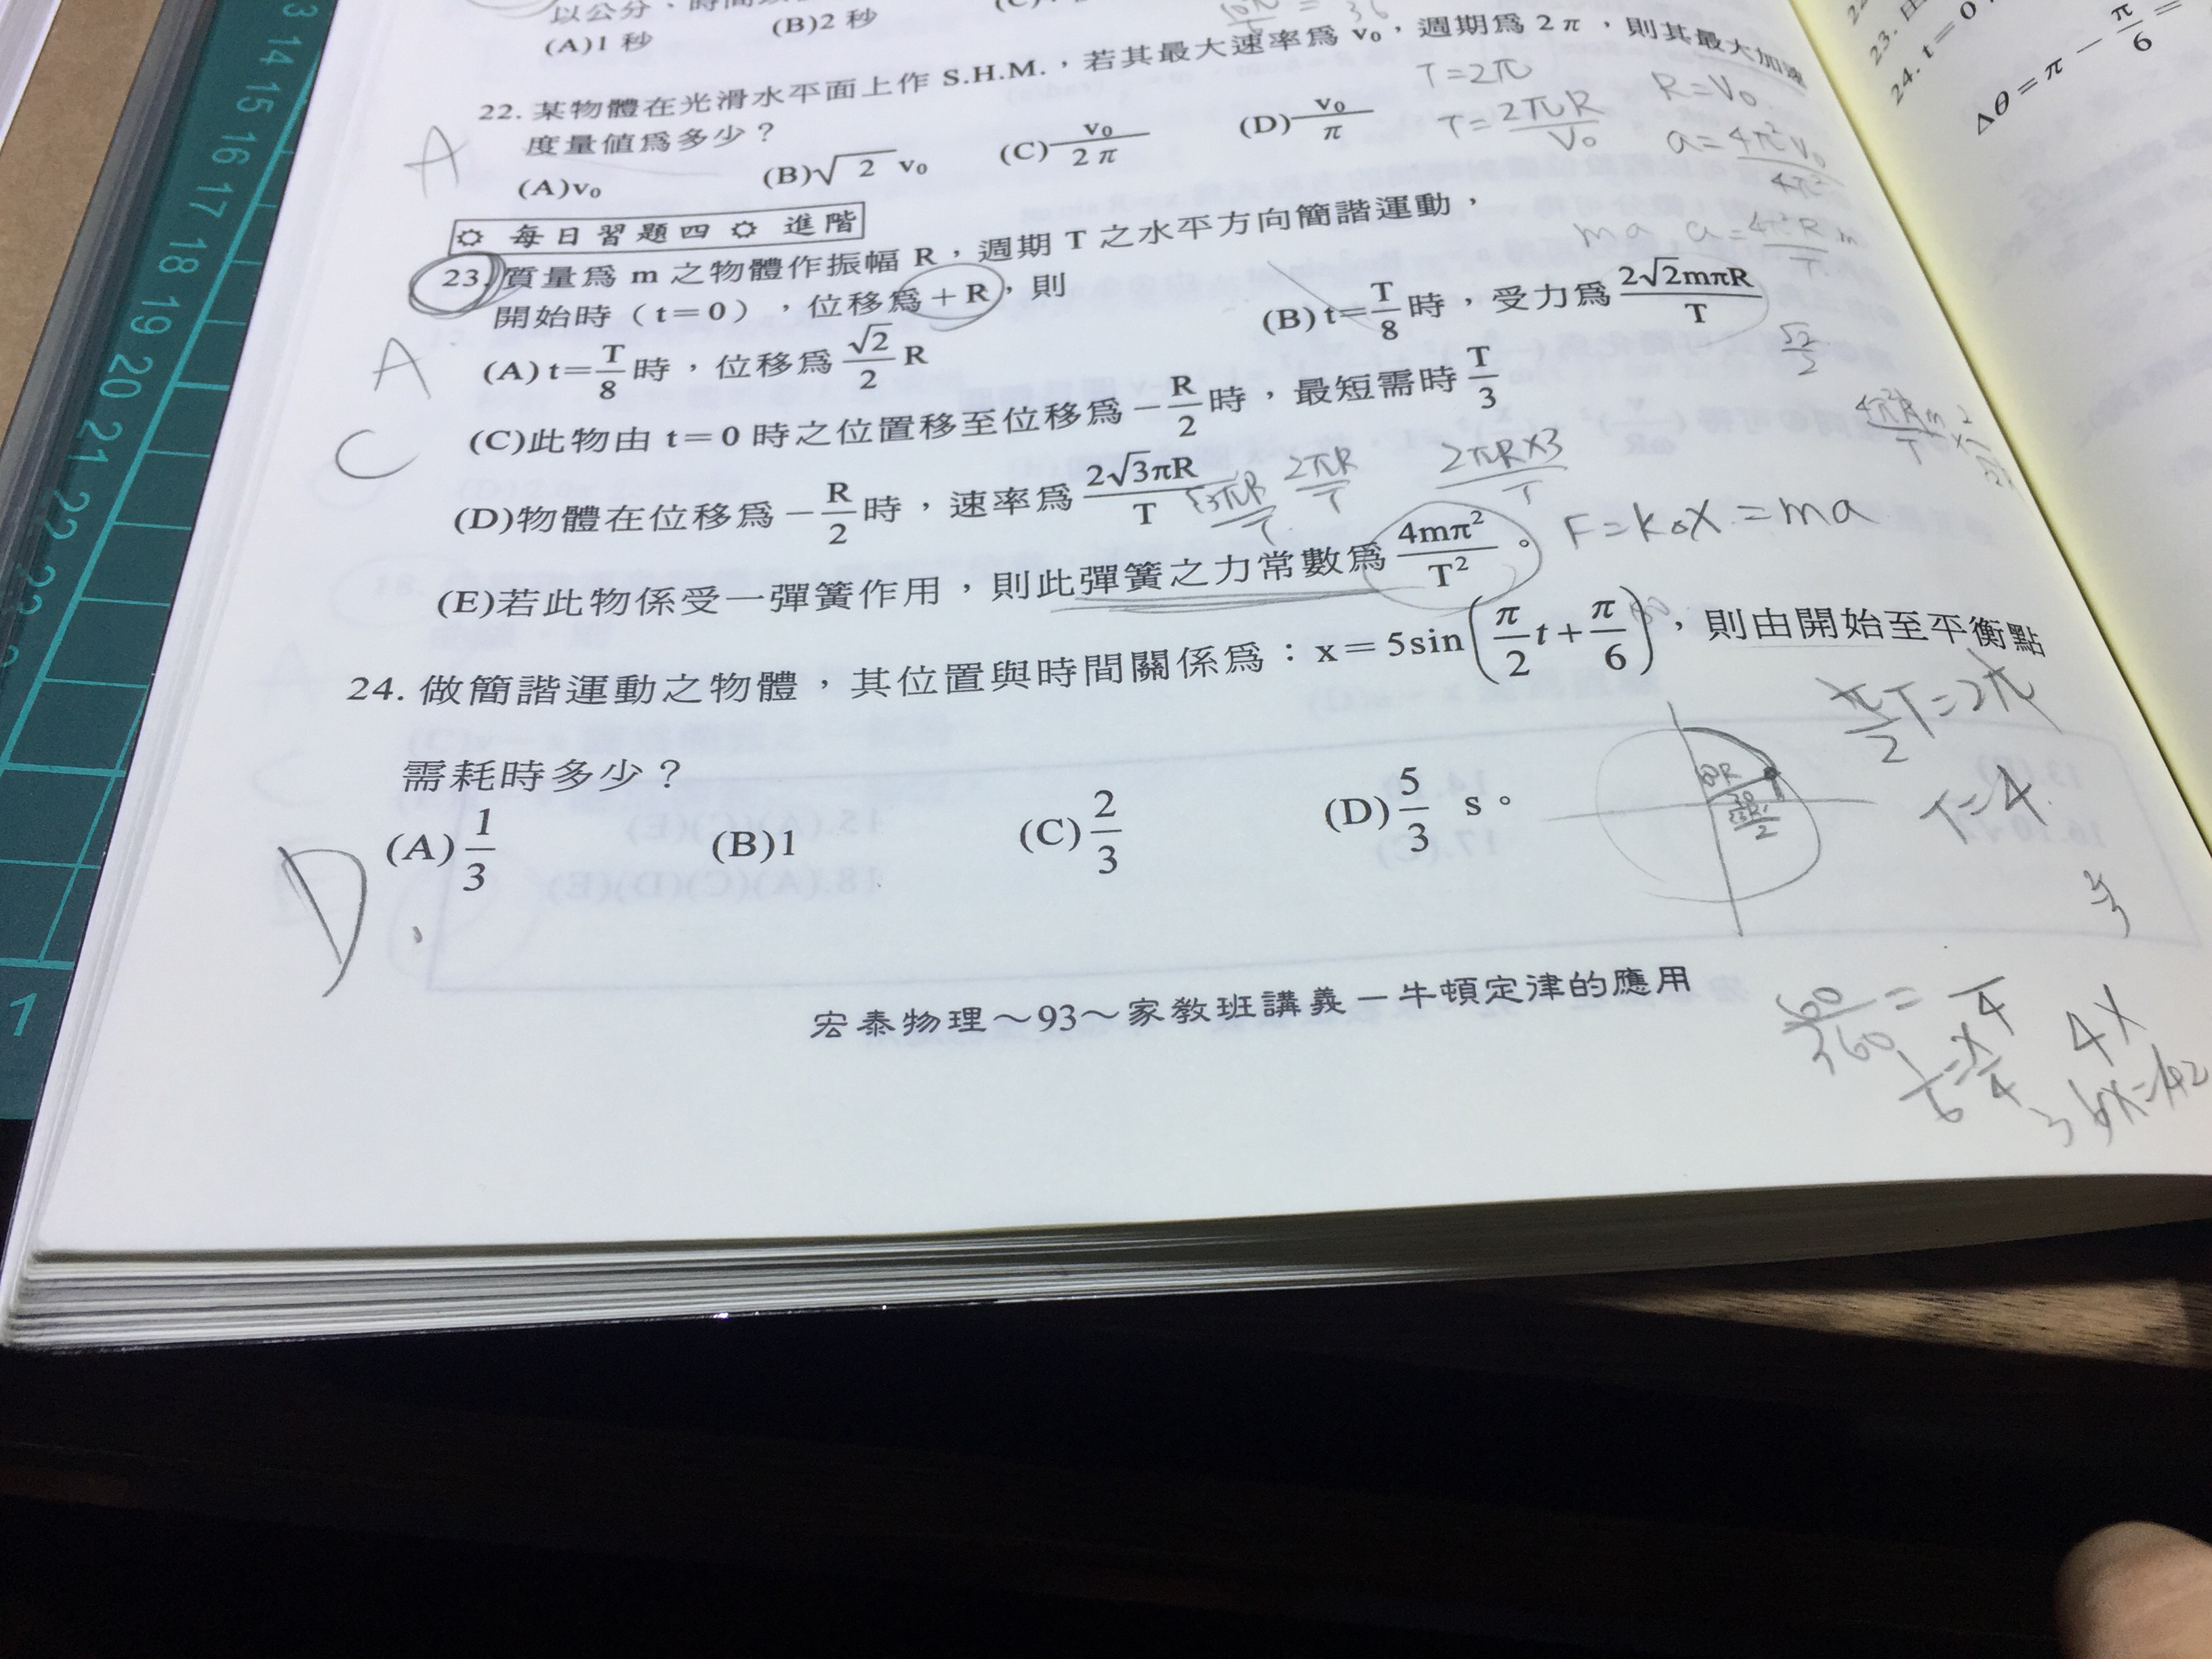 (A)1 秒 (B)2 秒
22. 某物體在光滑水平面上作 S.H.M.，若其最大速率為 v₀，週期為 2π，則其最大加速
度量值為多少？
(A)v₀ (B)√2 v₀ (C)v₀/2π (D)v₀/π
A
T=2π
T=2πR/V₀
R=V₀
a=4π²V₀/4π²
☼ 每日習題四 ☼ 進階
23. 質量為 m 之物體作振幅 R，週期 T 之水平方向簡諧運動，
開始時（t=0），位移為+R，則
(A) t=T/8 時，位移為 √2/2 R (B) t=T/8 時，受力為 2√2mπR/T
(C)此物由 t=0 時之位置移至位移為−R/2 時，最短需時 T/3
(D)物體在位移為−R/2 時，速率為 2√3πR/T
(E)若此物係受一彈簧作用，則此彈簧之力常數為 4mπ²/T²。
A
C
ma
√2/2
√3πR/T
2πR/T
2πR×3/T
F=kΔX=ma
24. 做簡諧運動之物體，其位置與時間關係為：x=5sin(π/2 t+π/6)，則由開始至平衡點
需耗時多少？
(A)1/3 (B)1 (C)2/3 (D)5/3 s。
D
π/2 T=2π
T=4
60/360=
1/6=X/4
4X
宏泰物理～93～家教班講義－牛頓定律的應用
23.
24. t=0
Δθ=π−π/6=
13 14 15 16 17 18 19 20 21 22 23
1